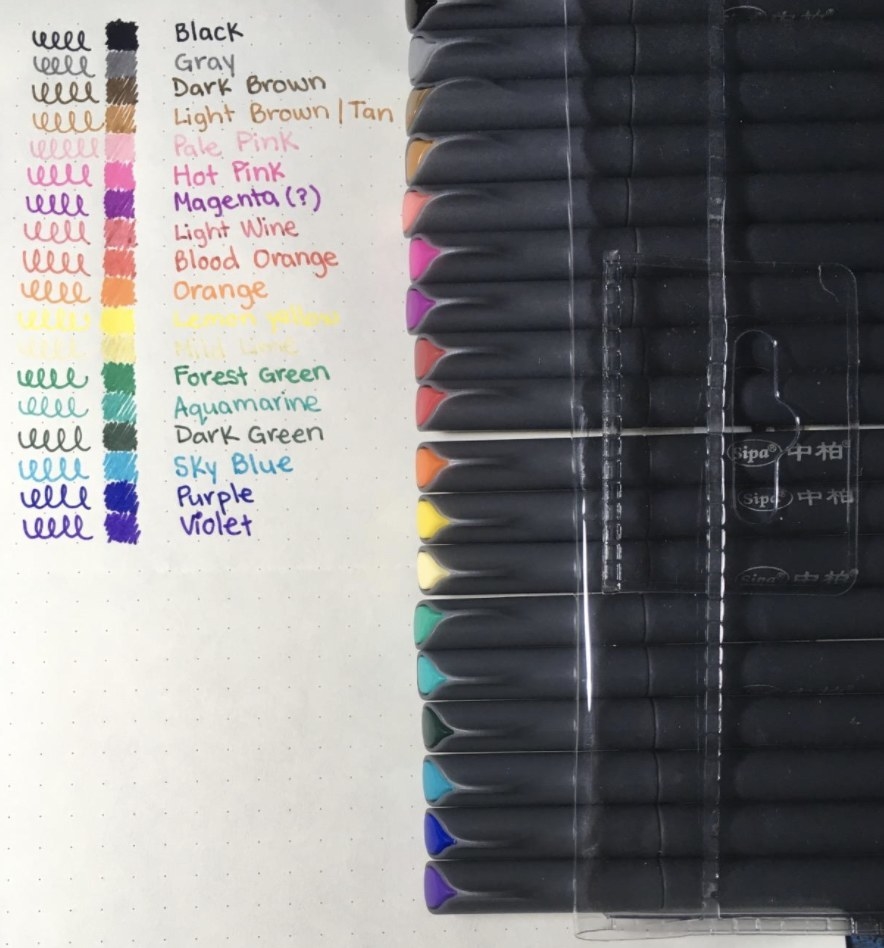 Black
Gray
Dark Brown
Light Brown | Tan
Pale Pink
Hot Pink
Magenta (?)
Light Wine
Blood Orange
Orange
Lemon yellow
Mild Lime
Forest Green
Aquamarine
Dark Green
Sky Blue
Purple
Violet
中柏
Sipa® 中柏®
Sipa® 中柏
Sipa® 中柏